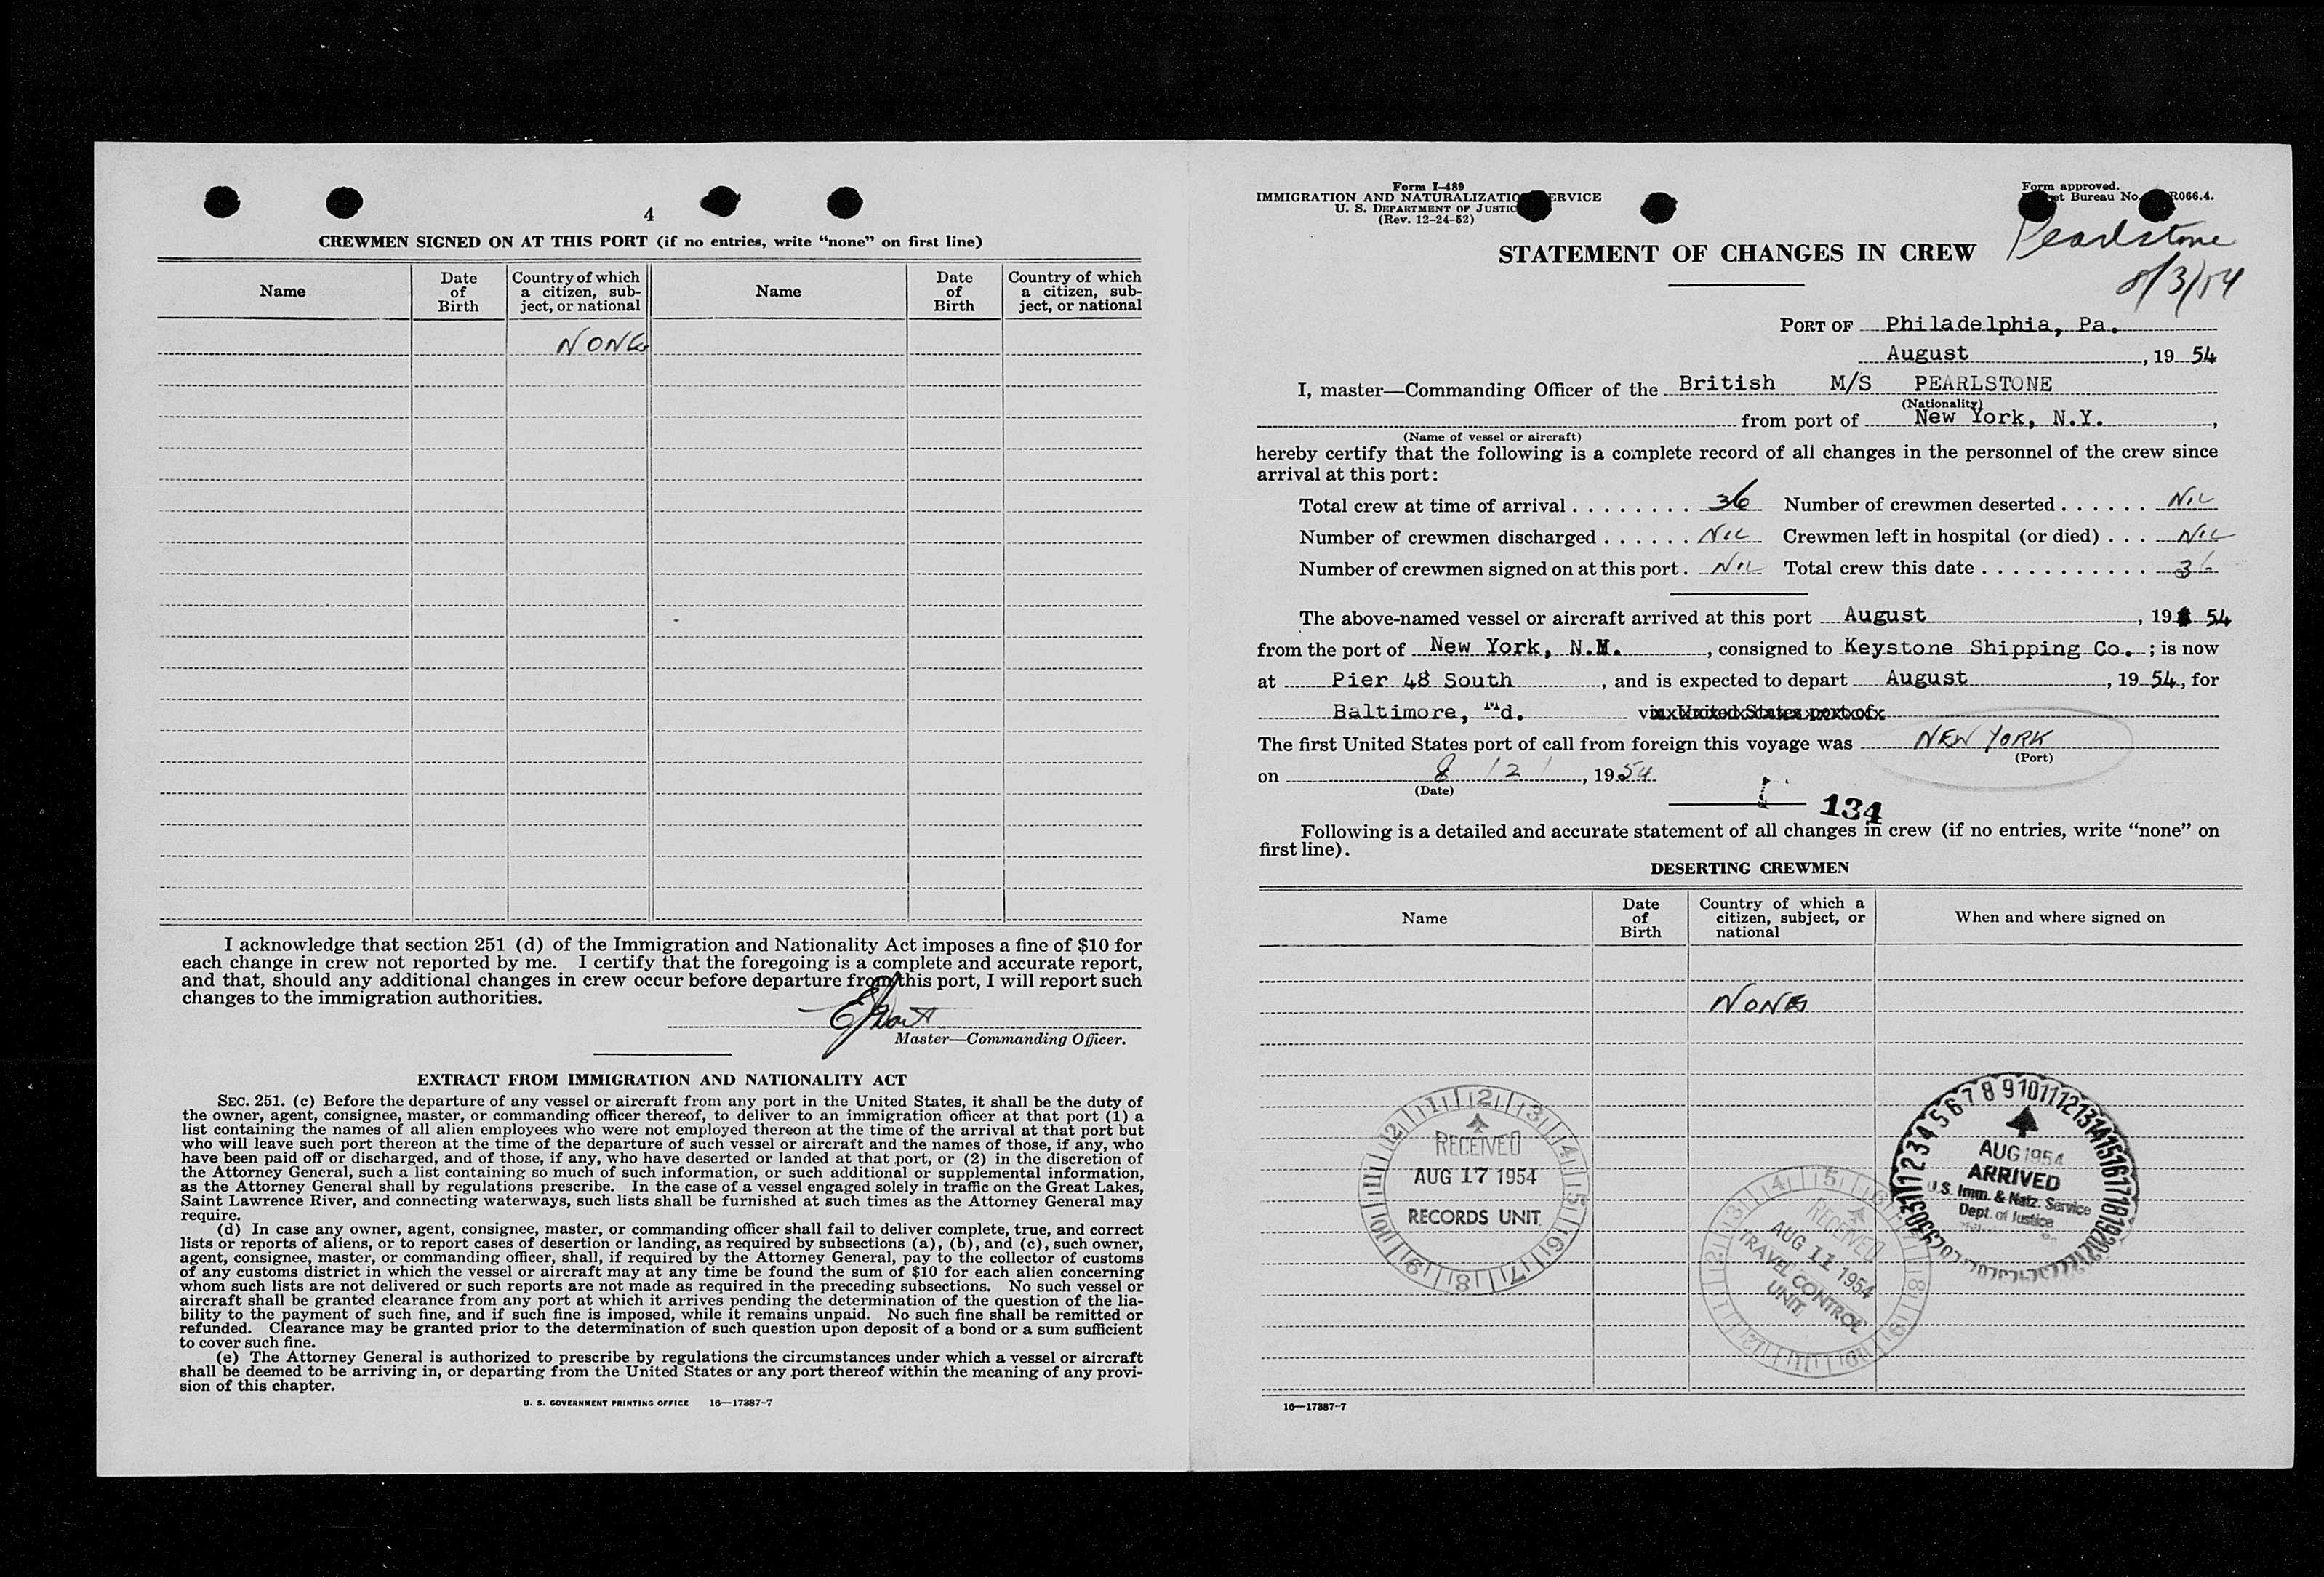 4
CREWMEN SIGNED ON AT THIS PORT (if no entries, write “none” on first line)
Name
Date of Birth
Country of which a citizen, subject, or national
Name
Date of Birth
Country of which a citizen, subject, or national
NONE
I acknowledge that section 251 (d) of the Immigration and Nationality Act imposes a fine of $10 for
each change in crew not reported by me. I certify that the foregoing is a complete and accurate report,
and that, should any additional changes in crew occur before departure from this port, I will report such
changes to the immigration authorities.
Master—Commanding Officer.
EXTRACT FROM IMMIGRATION AND NATIONALITY ACT
SEC. 251. (c) Before the departure of any vessel or aircraft from any port in the United States, it shall be the duty of
the owner, agent, consignee, master, or commanding officer thereof, to deliver to an immigration officer at that port (1) a
list containing the names of all alien employees who were not employed thereon at the time of the arrival at that port but
who will leave such port thereon at the time of the departure of such vessel or aircraft and the names of those, if any, who
have been paid off or discharged, and of those, if any, who have deserted or landed at that port, or (2) in the discretion of
the Attorney General, such a list containing so much of such information, or such additional or supplemental information,
as the Attorney General shall by regulations prescribe. In the case of a vessel engaged solely in traffic on the Great Lakes,
Saint Lawrence River, and connecting waterways, such lists shall be furnished at such times as the Attorney General may
require.
(d) In case any owner, agent, consignee, master, or commanding officer shall fail to deliver complete, true, and correct
lists or reports of aliens, or to report cases of desertion or landing, as required by subsections (a), (b), and (c), such owner,
agent, consignee, master, or commanding officer, shall, if required by the Attorney General, pay to the collector of customs
of any customs district in which the vessel or aircraft may at any time be found the sum of $10 for each alien concerning
whom such lists are not delivered or such reports are not made as required in the preceding subsections. No such vessel or
aircraft shall be granted clearance from any port at which it arrives pending the determination of the question of the lia-
bility to the payment of such fine, and if such fine is imposed, while it remains unpaid. No such fine shall be remitted or
refunded. Clearance may be granted prior to the determination of such question upon deposit of a bond or a sum sufficient
to cover such fine.
(e) The Attorney General is authorized to prescribe by regulations the circumstances under which a vessel or aircraft
shall be deemed to be arriving in, or departing from the United States or any port thereof within the meaning of any provi-
sion of this chapter.
U. S. GOVERNMENT PRINTING OFFICE 16—17387-7
Form I-489
IMMIGRATION AND NATURALIZATION SERVICE
U. S. DEPARTMENT OF JUSTICE
(Rev. 12-24-52)
Form approved.
Bureau No. R066.4.
Pearlstone
8/3/54
STATEMENT OF CHANGES IN CREW
PORT OF Philadelphia, Pa.
August, 19 54
I, master—Commanding Officer of the British M/S PEARLSTONE
(Nationality)
from port of New York, N.Y.,
(Name of vessel or aircraft)
hereby certify that the following is a complete record of all changes in the personnel of the crew since
arrival at this port:
Total crew at time of arrival 36 Number of crewmen deserted NIL
Number of crewmen discharged NIL Crewmen left in hospital (or died) NIL
Number of crewmen signed on at this port. NIL Total crew this date 36
The above-named vessel or aircraft arrived at this port August, 19 54
from the port of New York, N.Y., consigned to Keystone Shipping Co.; is now
at Pier 48 South, and is expected to depart August, 19 54, for
Baltimore, Md. via United States port of
The first United States port of call from foreign this voyage was NEW YORK
(Port)
on 8 / 2 /, 19 54
(Date)
134
Following is a detailed and accurate statement of all changes in crew (if no entries, write “none” on
first line).
DESERTING CREWMEN
Name
Date of Birth
Country of which a citizen, subject, or national
When and where signed on
NONE
RECEIVED
AUG 17 1954
RECORDS UNIT
RECEIVED
AUG 11 1954
TRAVEL CONTROL
UNIT
AUG 1954
ARRIVED
U.S. Imm. & Natz. Service
Dept. of Justice
16—17387-7